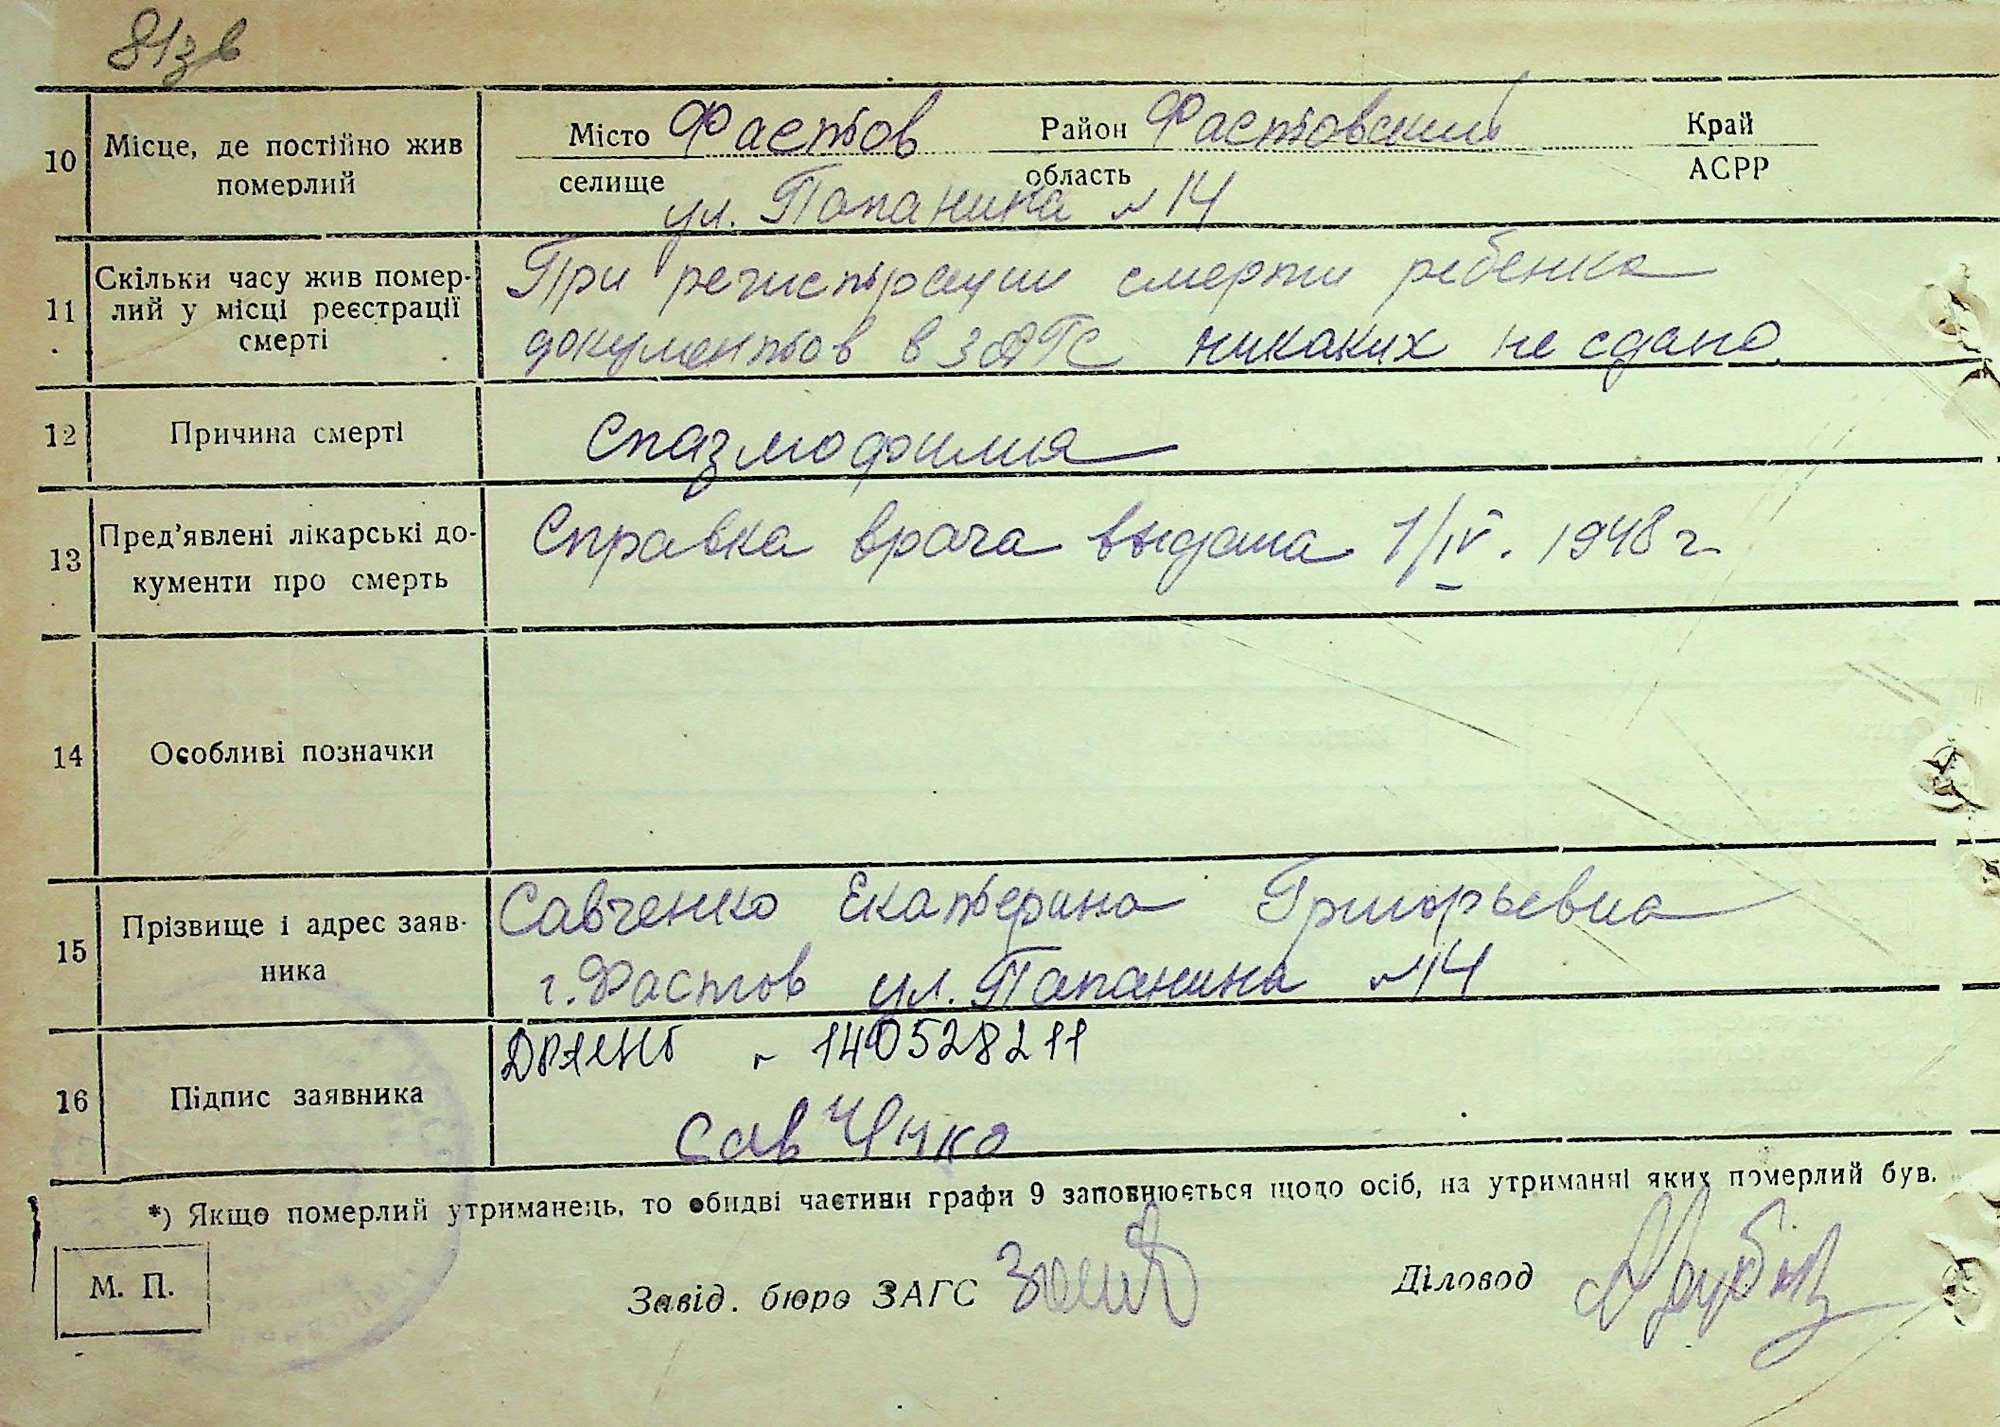 81зв
10 Місце, де постійно жив померлий
Місто Фастов Район Фастовский Край
селище область АСРР
ул. Папанина №14
11 Скільки часу жив помер-
лий у місці реєстрації
смерті
При регистрации смерти ребенка
документов в ЗАГС никаких не сдано.
12 Причина смерті Спазмофилия
13 Пред'явлені лікарські до-
кументи про смерть
Справка врача выдана 1/IV. 1948 г
14 Особливі позначки
15 Прізвище і адрес заяв-
ника
Савченко Екатерина Григорьевна
г. Фастов ул. Папанина №14
16 Підпис заявника
140528211
СавЧнко
*) Якщо померлий утриманець, то обидві частини графи 9 заповнюється щодо осіб, на утриманні яких померлий був.
М. П.
Завід. бюро ЗАГС
Діловод